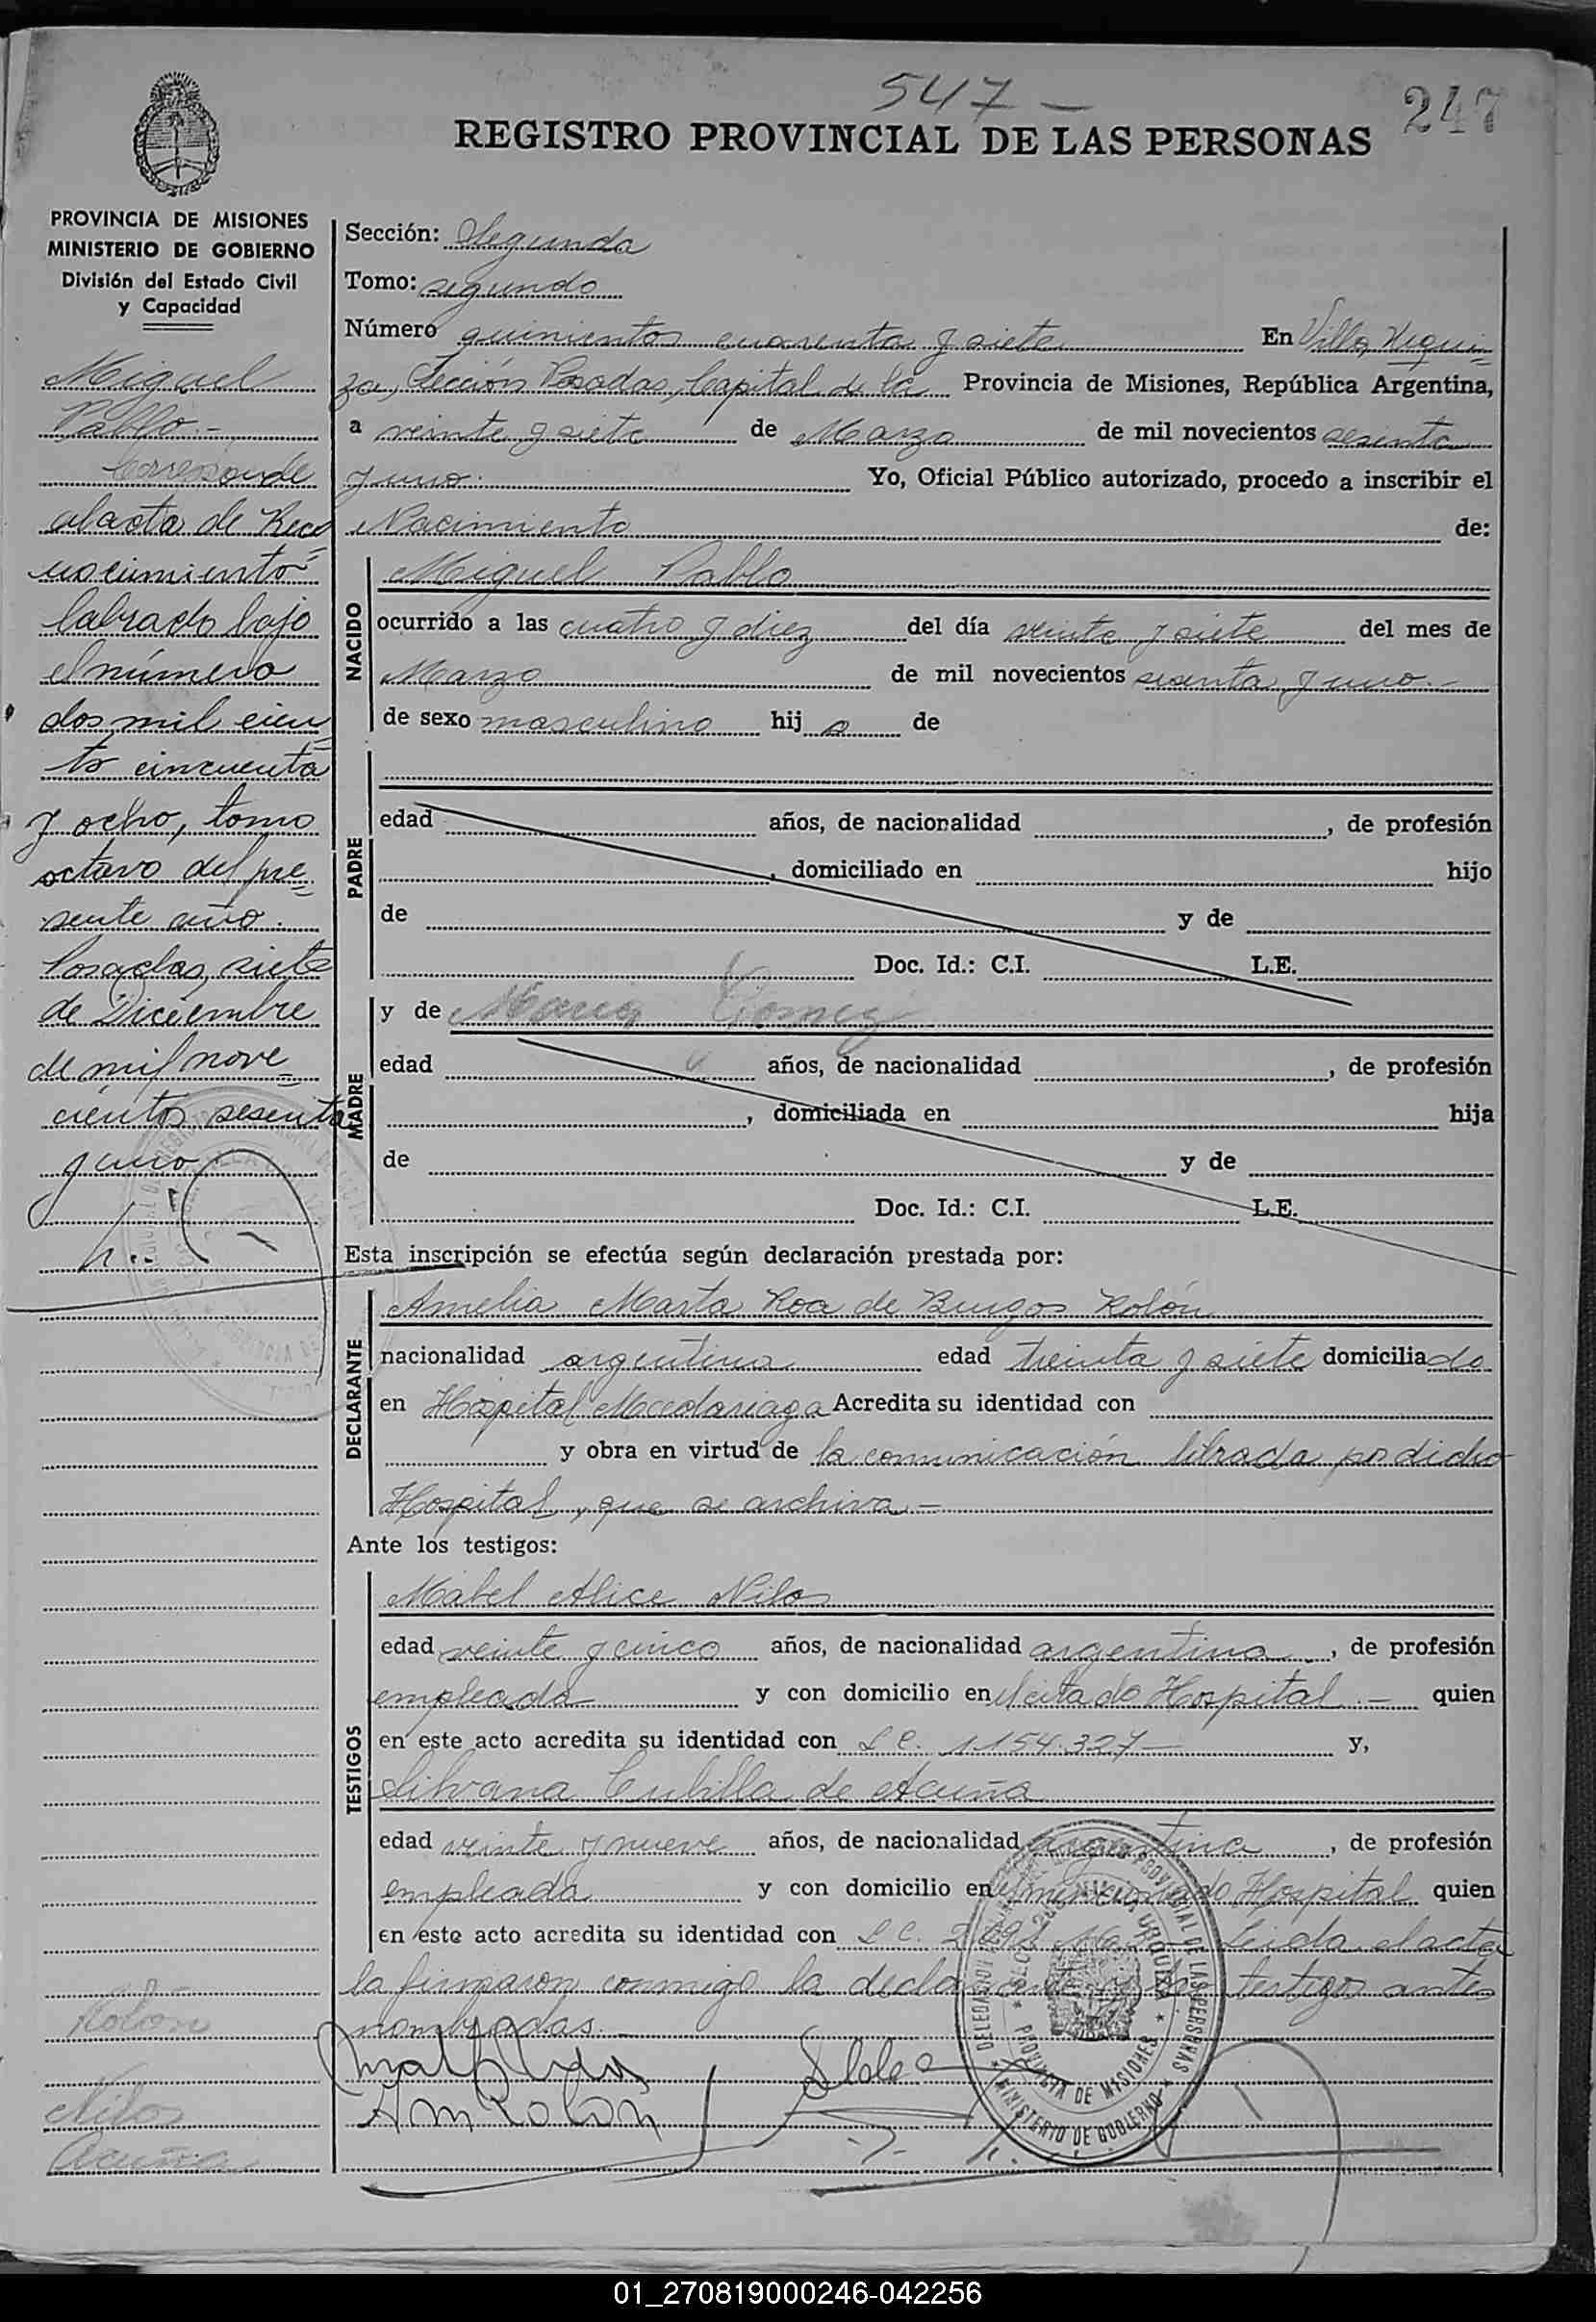 547 -
247
REGISTRO PROVINCIAL DE LAS PERSONAS
PROVINCIA DE MISIONES
MINISTERIO DE GOBIERNO
División del Estado Civil
y Capacidad
Miguel
Pablo.-
Corresponde
al acta de Reco
nocimiento
labrado bajo
el número
dos mil cien
to cincuenta
y ocho, tomo
octavo del pre-
sente año.
Posadas, siete
de Diciembre
de mil nove-
cientos sesenta
y uno
Rolón
Nilos
Acuña
Sección: Segunda
Tomo: segundo
Número quinientos cuarenta y siete En Villa Urqui-
za, Sección Posadas, Capital de la Provincia de Misiones, República Argentina,
a veinte y siete de Marzo de mil novecientos sesenta
y uno. Yo, Oficial Público autorizado, procedo a inscribir el
Nacimiento de:
NACIDO
Miguel Pablo
ocurrido a las cuatro y diez del día veinte y siete del mes de
Marzo de mil novecientos sesenta y uno.-
de sexo masculino hij o de
PADRE
edad años, de nacionalidad , de profesión
, domiciliado en hijo
de y de
Doc. Id.: C.I. L.E.
MADRE
y de Maria Gomez
edad años, de nacionalidad , de profesión
, domiciliada en hija
de y de
Doc. Id.: C.I. L.E.
Esta inscripción se efectúa según declaración prestada por:
DECLARANTE
Amelia Marta Roa de Burgos Rolón
nacionalidad argentina edad treinta y siete domiciliado
en Hospital Madariaga Acredita su identidad con
y obra en virtud de la comunicación librada por dicho
Hospital, que se archiva.-
Ante los testigos:
TESTIGOS
Mabel Alice Nilos
edad veinte y cinco años, de nacionalidad argentina, de profesión
empleada y con domicilio en el citado Hospital.- quien
en este acto acredita su identidad con L C. 1.154.327- y,
Silvana Cubilla de Acuña
edad veinte y nueve años, de nacionalidad argentina, de profesión
empleada y con domicilio en el mencionado Hospital quien
en este acto acredita su identidad con L C. Leida el acta
la firmaron conmigo la declarante y los testigos antes
nombradas.-
A M Rolon
DELEGACION REGISTRO PROVINCIAL DE LAS PERSONAS
VILLA URQUIZA
PROVINCIA DE MISIONES
MINISTERIO DE GOBIERNO
01_270819000246-042256